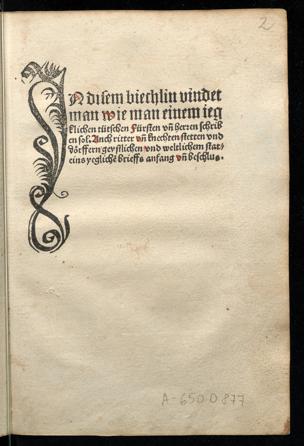 2
IN disem biechlin vindet
man wie man einem ieg
klichen tütschen Fürsten vñ herren schrib
en sol. Auch ritter vñ knechten stetten vnd
dörffern geystlichen vnd weltlichem stat⸗
eins yegliche᷒ brieffs anfang vñ beschlus.
A-650 D 877